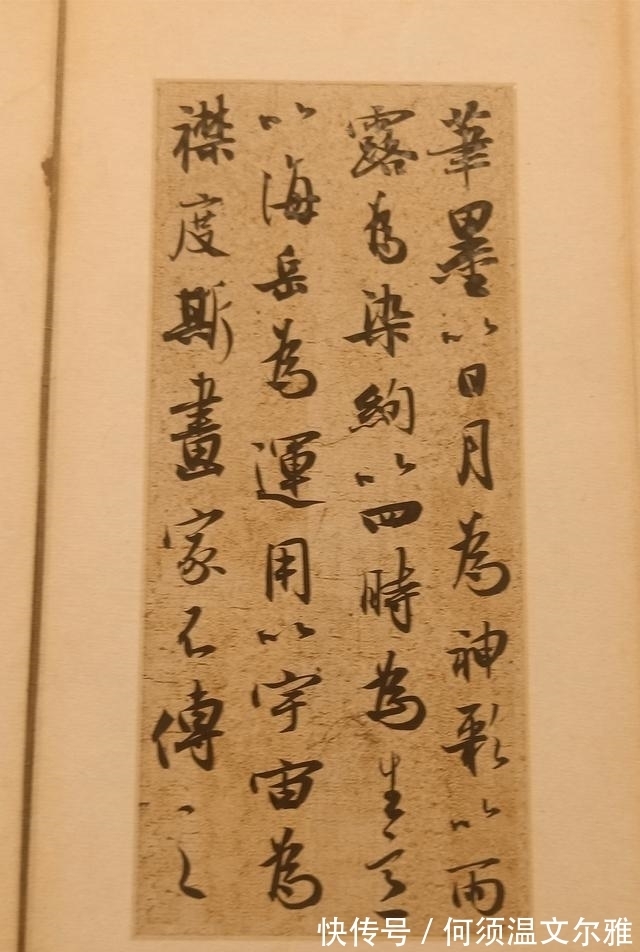 筆墨以日月為神彩以雨
露為染絢以四時為生
以海岳為運用以宇宙為
襟度斯畫家不傳之
快传号 / 何须温文尔雅